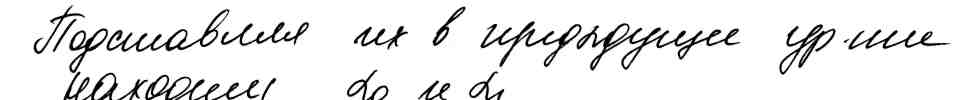 Подставляя их в предыдущие ур-ние
находим α₀ и α₁